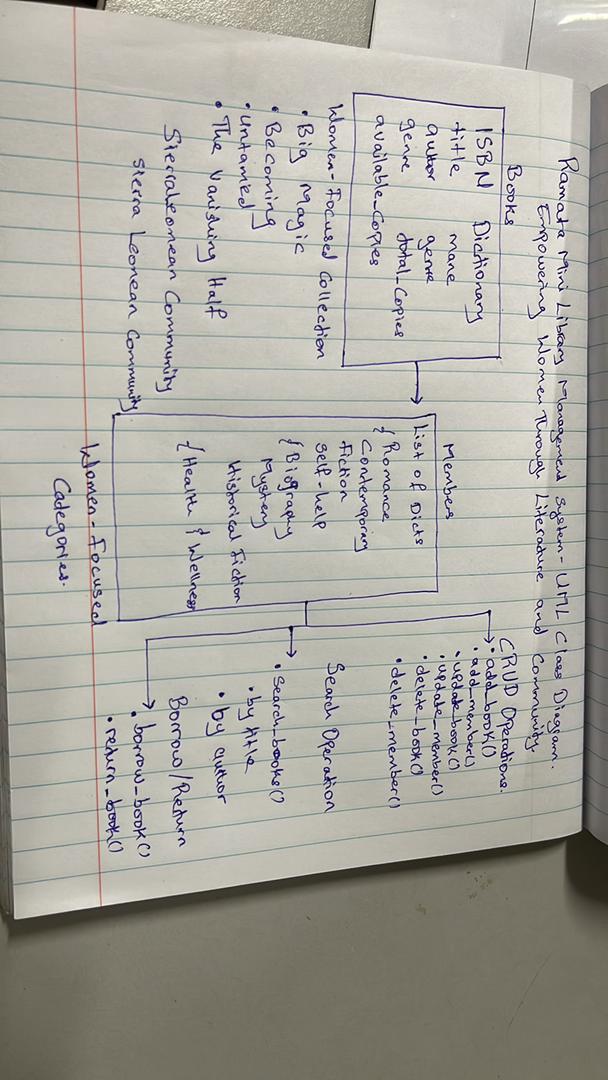 Ramata Mini Library Management System - UML Class Diagram.
Empowering Women Through Literature and Community
Books
ISBN Dictionary
title mane
autor genre
genre total_Copies
available_Copies
Women-Focused Collection
• Big Magic
• Becoming
• Untamed
• The Vanishing Half
Sierraleonean Community
Sierra Leonean Community
Members
List of Dicts
{ Romance
Contemporary
fiction
Self-help
{ Biography
Mystery
Historical Fiction
{ Health & Wellness
Women-Focused
Categories.
CRUD Operations.
• add_book()
• add_member()
• update_book()
• update_member()
• delete_book()
• delete_member()
Search Operation
• Search_books()
• by title
• by author
Borrow/Return
• borrow_book()
• return_book()